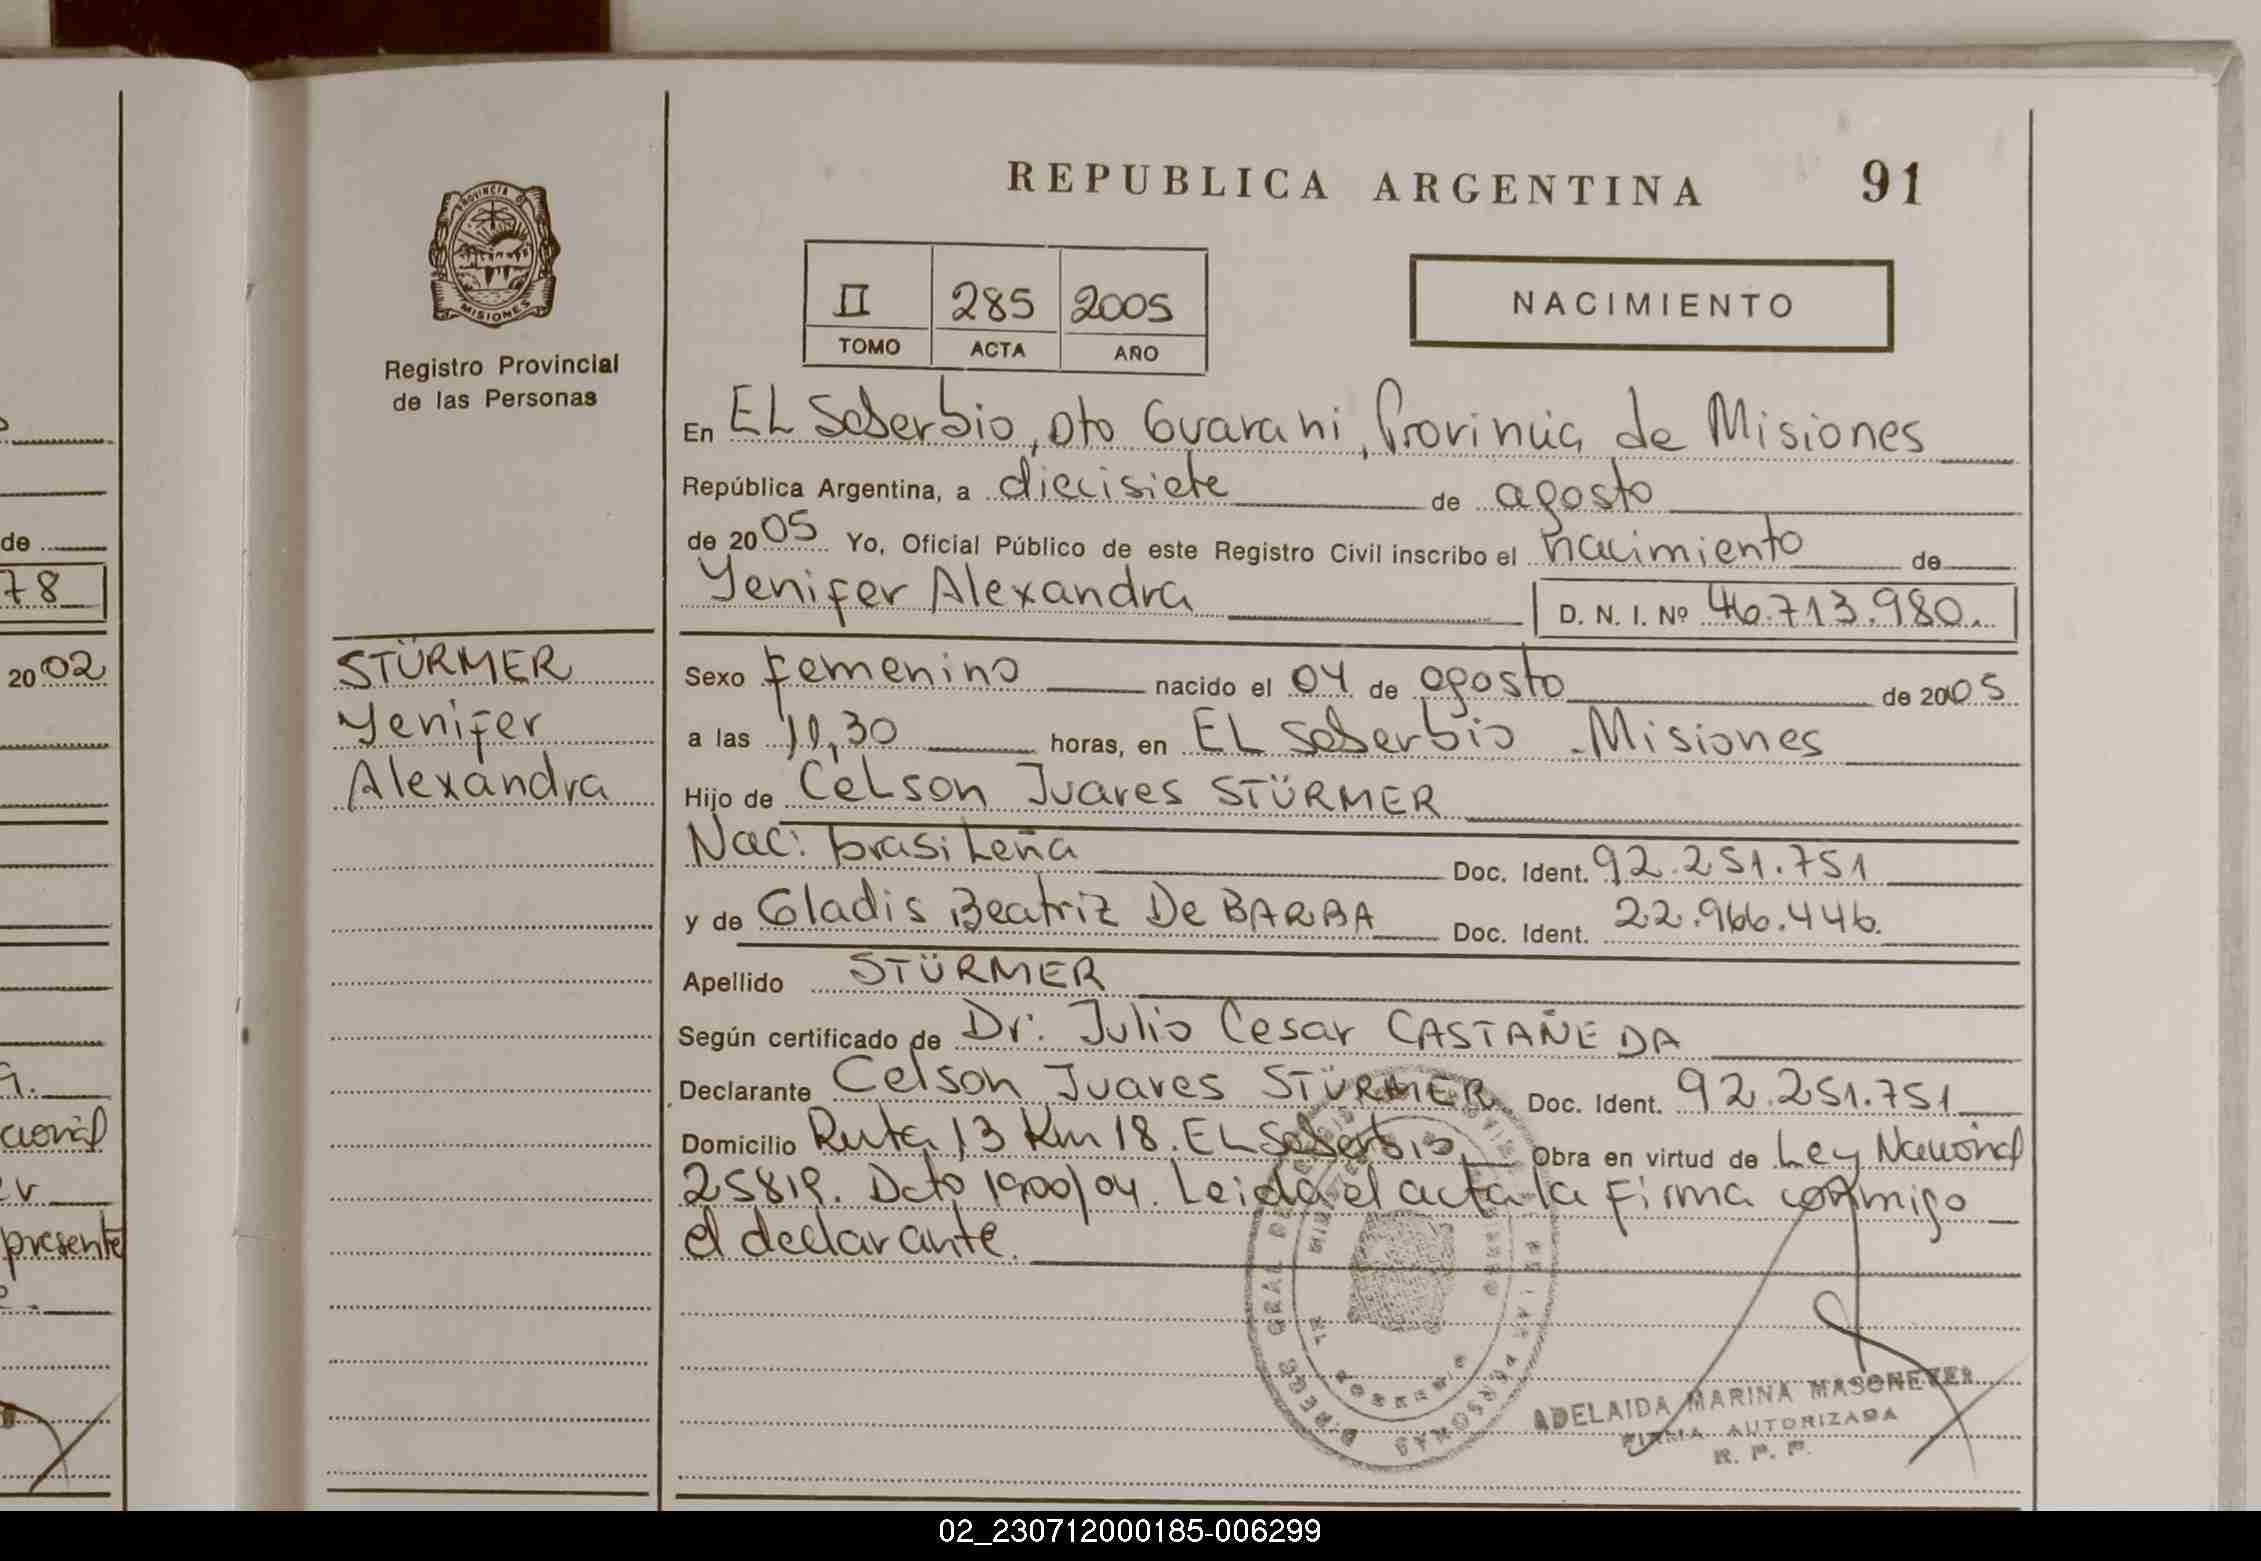 REPUBLICA ARGENTINA 91
PROVINCIA D
MISIONES
Registro Provincial
de las Personas
II 285 2005
TOMO ACTA AÑO
NACIMIENTO
En EL Soberbio, Dto Guarani, Provincia de Misiones
República Argentina, a diecisiete de agosto
de 2005 Yo, Oficial Público de este Registro Civil inscribo el nacimiento de
Yenifer Alexandra D. N. I. Nº 46.713.980.
STÜRMER
Yenifer
Alexandra
Sexo femenino nacido el 04 de agosto de 2005
a las 11,30 horas, en EL Soberbio - Misiones
Hijo de Celson Juares STÜRMER
Nac: brasileña Doc. Ident. 92.251.751
y de Gladis Beatriz De BARBA Doc. Ident. 22.966.446.
Apellido STÜRMER
Según certificado de Dr: Julio Cesar CASTAÑEDA
Declarante Celson Juares STÜRMER Doc. Ident. 92.251.751
Domicilio Ruta 13 Km 18. EL Soberbio Obra en virtud de Ley Nacional
25819. Dcto 1900/04. Leida el acta la firma conmigo
el declarante.
ADELAIDA MARINA
FIRMA AUTORIZADA
R. P. P.
de
78
2002
a.
cional
presente
02_230712000185-006299